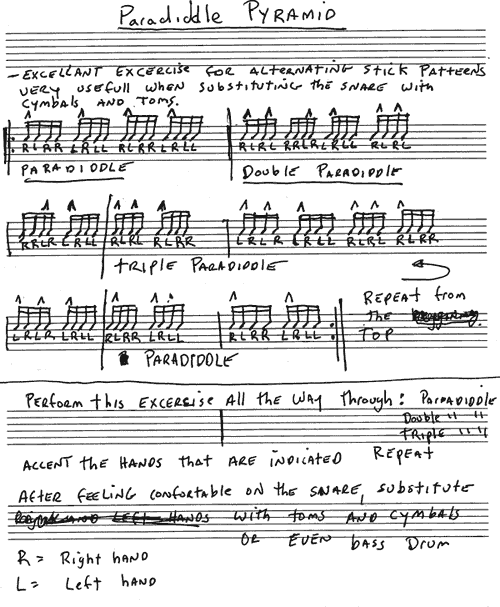 Paradiddle Pyramid
- Excellant Excercise for alternating stick patterns
very usefull when substituting the snare with
cymbals and toms.
RLRR LRLL RLRR LRLL RLRL RRLR LRLL RLRL
PARADIDDLE Double Paradiddle
RRLR LRLL RLRL RLRR LRLR LRLL RLRL RLRR
triple Paradiddle
LRLR LRLL RLRR LRLL RLRR LRLL
Repeat from
the
Top
PARADIDDLE
Perform this excersise all the way through: Paradiddle
Double " "
triple " "
Accent the hands that are indicated Repeat
After feeling confortable on the snare, substitute
with toms and cymbals
or even bass drum
R = Right hand
L = Left hand